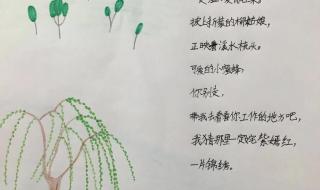 披上轻蒙的柳姑娘,
正映着溪水梳头。
可爱的小蜜蜂,
你别忙,
带我去看看你工作的地方吧,
我猜那里一定姹紫嫣红,
一片锦绣。